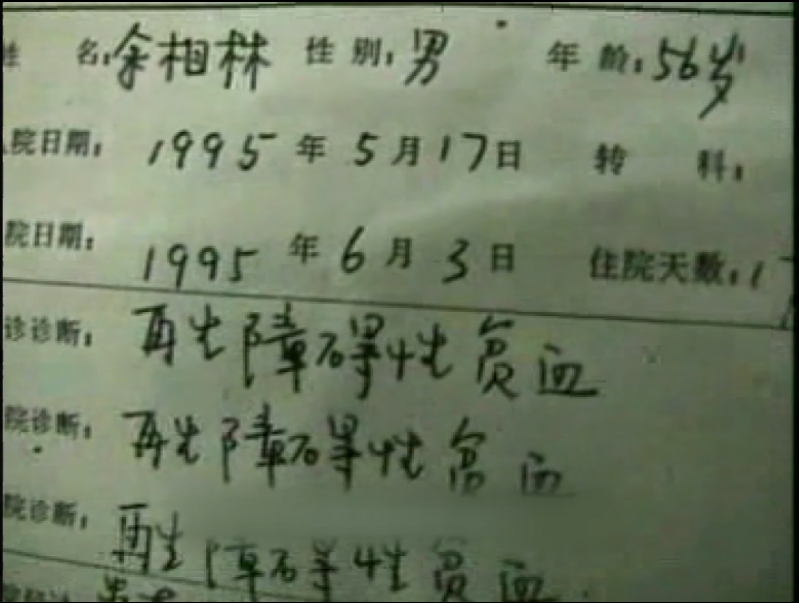 姓 名:余相林 性别:男 年龄:56岁
入院日期: 1995年5月17日 转科:
院日期: 1995年6月3日 住院天数:17
诊诊断: 再生障碍性贫血
院诊断: 再生障碍性贫血
院诊断: 再生障碍性贫血